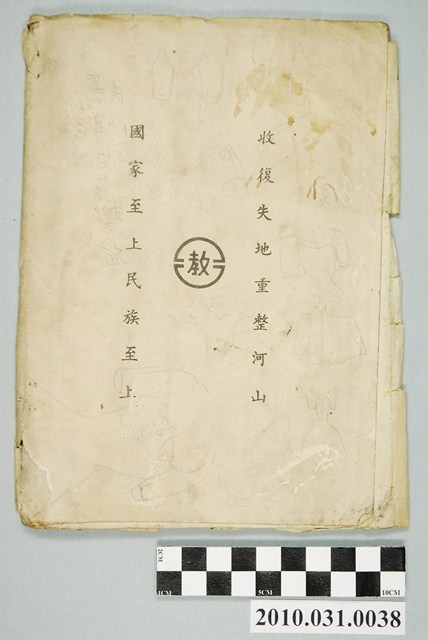 收復失地重整河山
教
國家至上民族至上
2CM
1CM
5CM
10CM
2010.031.0038